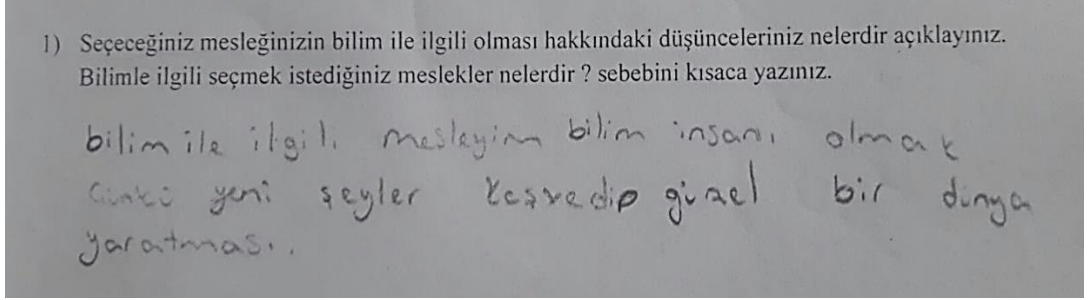 1) Seçeceğiniz mesleğinizin bilim ile ilgili olması hakkındaki düşünceleriniz nelerdir açıklayınız.
Bilimle ilgili seçmek istediğiniz meslekler nelerdir ? sebebini kısaca yazınız.
bilim ile ilgili mesleyim bilim insanı olmak
Cünkü yeni şeyler keşvedip güzel bir dünya
yaratması.